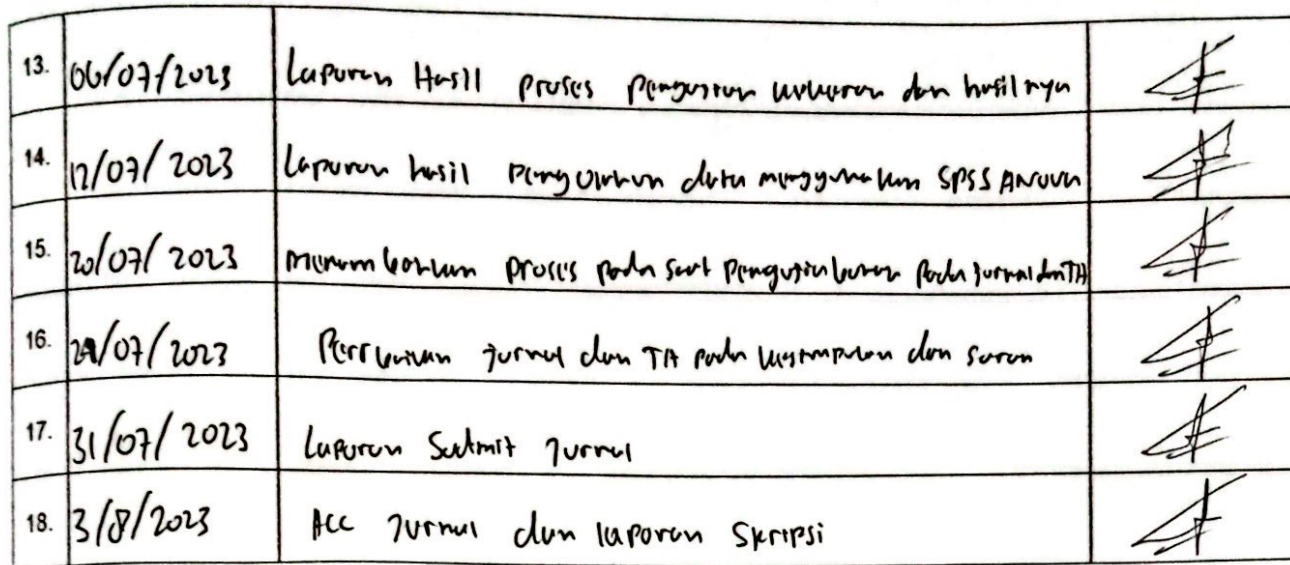 13. 06/07/2023 Laporan Hasil proses pengujian dan hasilnya
14. 12/07/2023 Laporan hasil data menggunakan SPSS ANOVA
15. 20/07/2023 menambahkan proses pada saat pengujian pada jurnal dan TA
16. /07/2023 Perbaikan jurnal dan TA pada kesimpulan dan saran
17. 31/07/2023 Laporan Submit Jurnal
18. 3/8/2023 Acc Jurnal dan laporan Skripsi